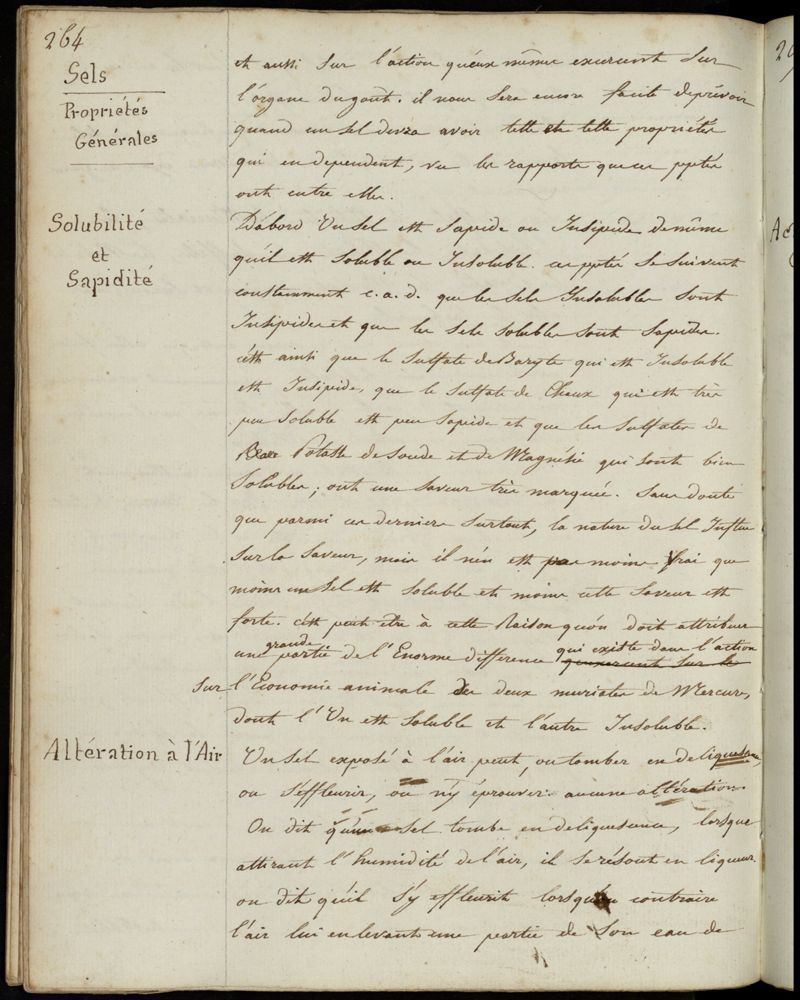 264
Sels
Propriétés
Générales
et aussi sur l'action qu'eux même exercent sur
l'organe du gout. il nous sera encore facile de prévoir
quand un sel devra avoir telle ou telle propriétés
qui en dependent, vu les rapports que ces pptés
ont entre elles.
Solubilité
et
Sapidité
D'abord Un sel est Sapide ou Insipide de même
qu'il est Soluble ou Insoluble. ces pptés se suivent
constamment c.a.d. que les sels Insolubles sont
Insipides et que les sels solubles sont sapides.
c'est ainsi que le Sulfate de Baryte qui est Insoluble
est Insipide, que le Sulfate de Chaux qui est très
peu soluble est peu sapide et que les Sulfates de
Potasse de soude et de Magnésie qui sont bien
Solubles; ont une saveur très marquée. Sans doute
que parmi ces derniers surtout, la nature du sel Influe
sur la saveur, mais il n'en est pas moins Vrai que
moins un sel est soluble et moins cette saveur est
forte. c'est peut être à cette Raison qu'on doit attribuer
une grande partie de l'Enorme différence qui existe dans l'action qu'exercent sur le
sur l'Economie animale des deux muriates de Mercure,
dont l'Un est soluble et l'autre Insoluble.
Altération à l'Air
Un Sel exposé à l'air peut, ou tomber en deliquescence,
ou s'effleurir, ou n'y éprouver aucune altération.
On dit qu'un Sel tombe en deliquesence, lorsque
attirant l'humidité de l'air, il se résout en liqueur.
on dit qu'il s'y effleurit lorsqu'au contraire
l'air lui enlevant une partie de son eau de